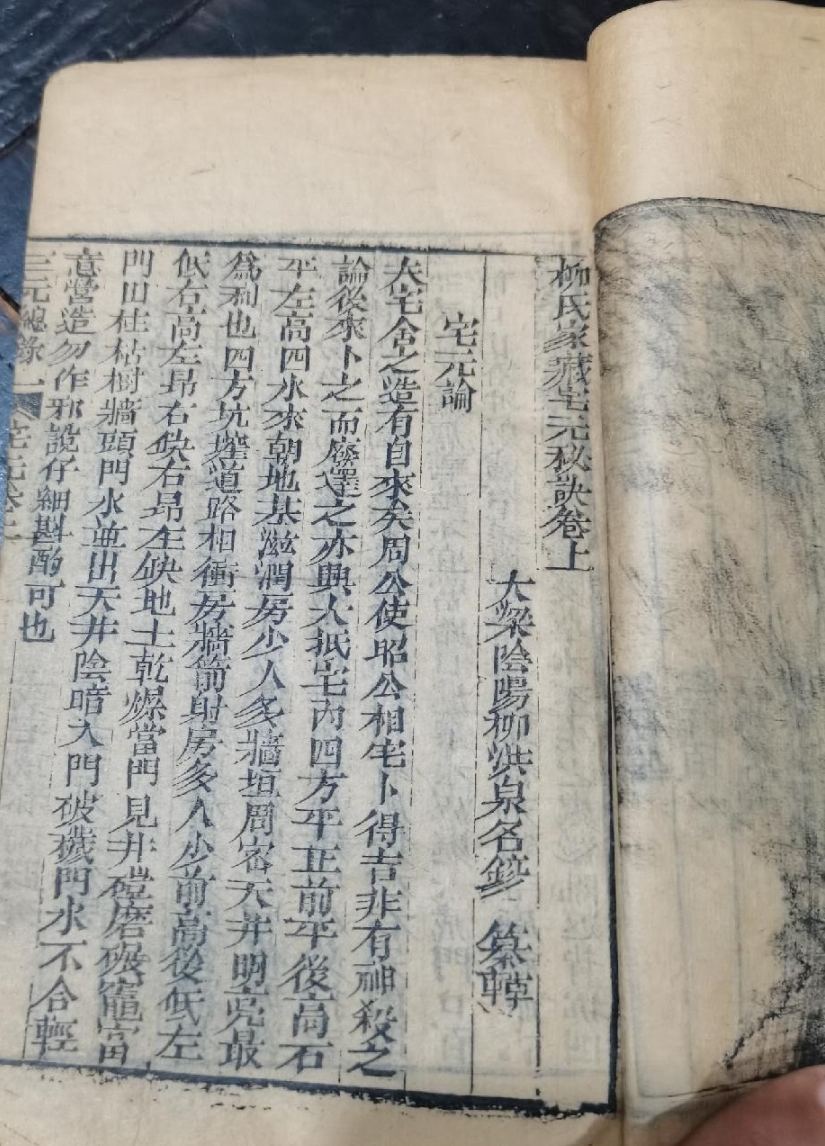 柳氏家藏宅元秘訣卷上
大梁陰陽柳洪泉名鉁 纂輯
宅元論
夫宅舍之造有自來矣周公使昭公相宅卜得吉非有神殺之
論後來卜之而廢逹之亦興大抵宅內四方平正前平後高右
平左高四水來朝地基滋潤房少人多牆垣周密天井明亮最
為利也四方坑堆道路相衝房牆箭射房多人少前高後低左
低右高左昂右缺右昂左缺地土乾燥當門見井磨碾竈當
門田柱枯樹牆頭門水並出天井陰暗大門破穢門水不合輕
意營造勿作邪說仔細斟酌可也
三元總錄 一 宅元卷上